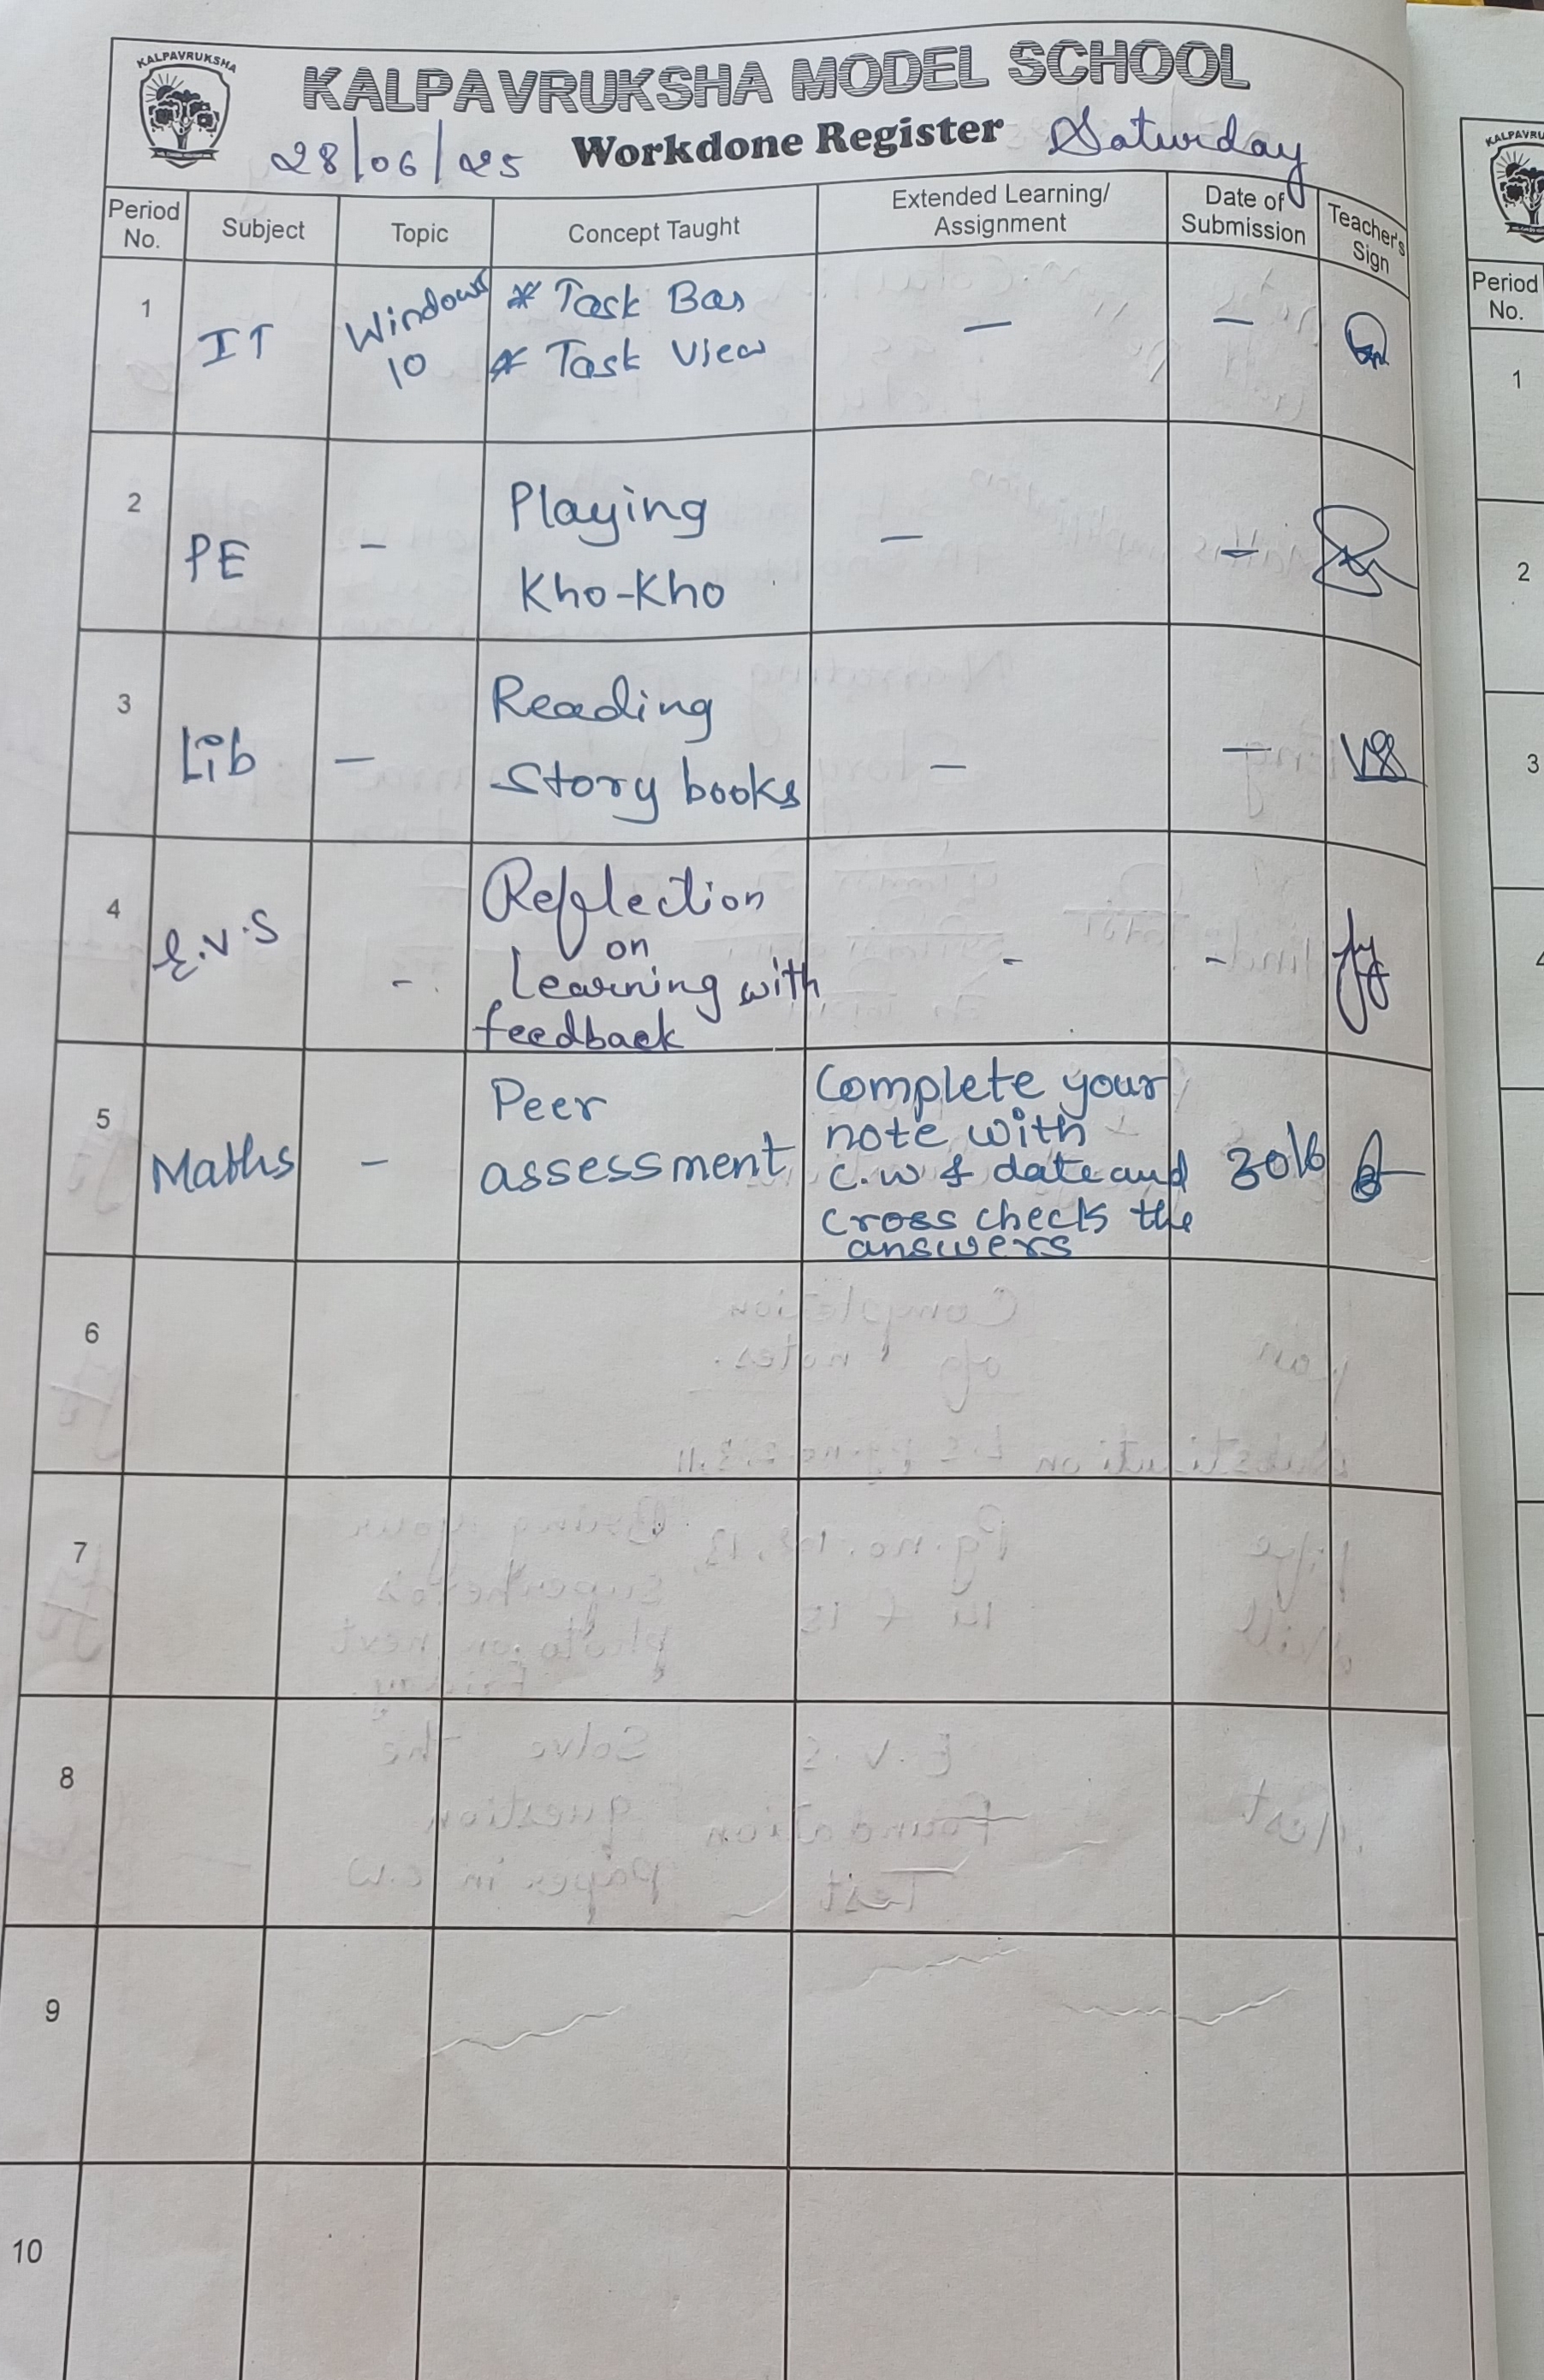 KALPAVRUKSHA
KALPAVRUKSHA MODEL SCHOOL
28/06/25 Workdone Register Saturday
Period No. Subject Topic Concept Taught Extended Learning/ Assignment Date of Submission Teacher's Sign
1 IT Windows 10 * Task Bar — —
* Task View
2 PE - Playing — —
Kho-Kho
3 Lib — Reading — —
Story books
4 E.V.S - Reflection - -
on
Learning with
feedback
5 Maths - Peer assessment Complete your 30/6
note with
c.w & date and
cross check the
answers
6
7
8
9
10
Period No.
1
2
3